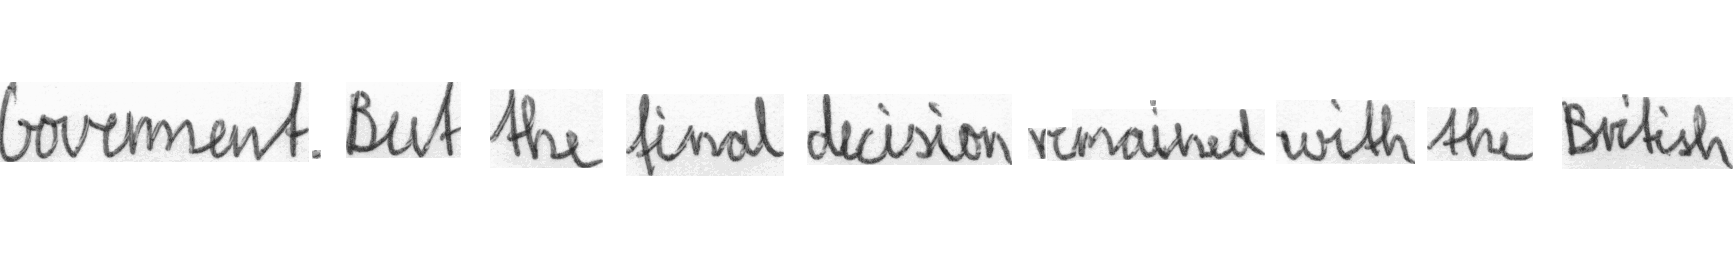 Government. But the final decision remained with the British